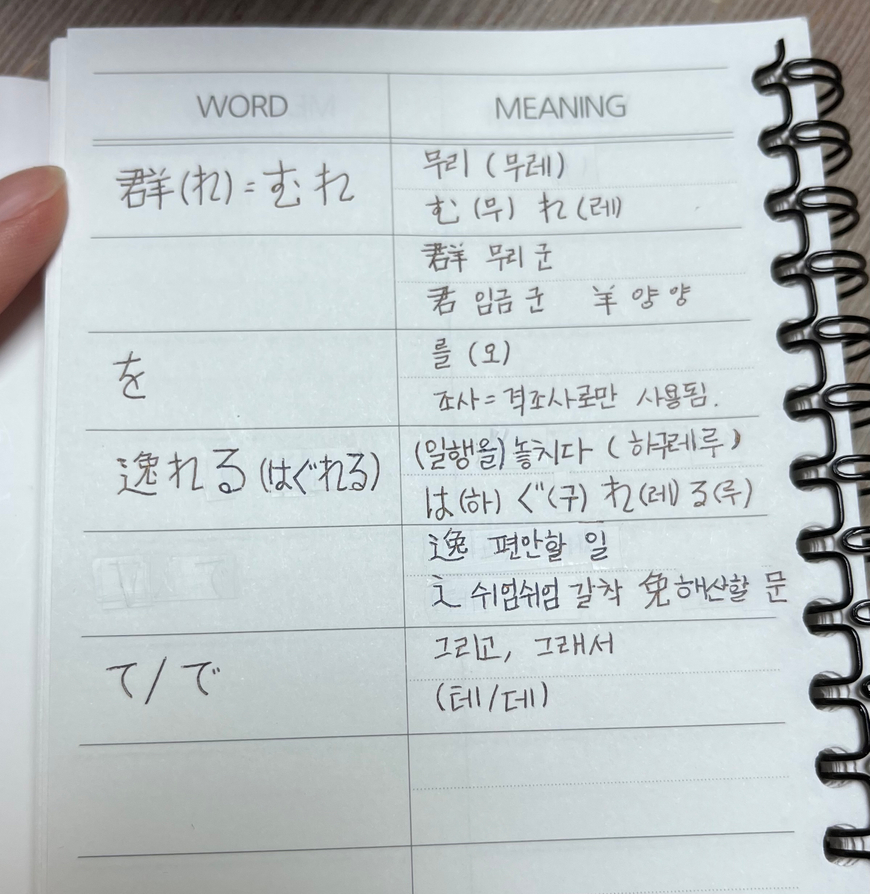 WORD MEANING
群(れ)=むれ 무리 (무레)
む(무) れ(레)
群 무리 군
君 임금 군 羊 양 양
を 를 (오)
조사=격조사로만 사용됨.
逸れる(はぐれる) (일행을)놓치다 (하구레루)
は(하) ぐ(구) れ(레) る(루)
逸 편안할 일
辶 쉬엄쉬엄 갈착 免 해산할 문
て/で 그리고, 그래서
(테/데)